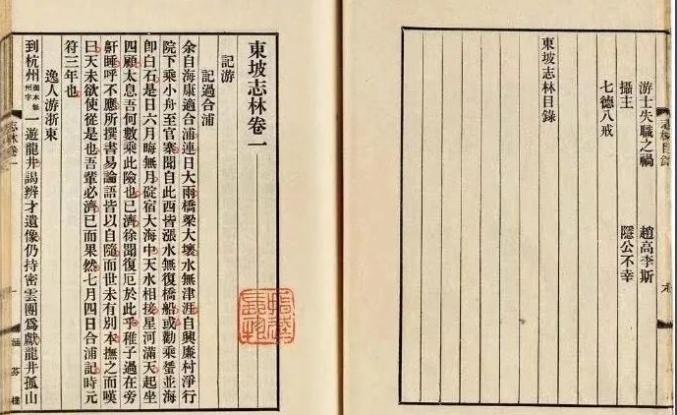 游士失職之禍　趙高李斯
攝主　隱公不幸
七德八戒
東坡志林目錄
東坡志林卷一
記游
記過合浦
余自海康適合浦連日大雨橋梁大壞水無津涯自興廉村淨行
院下乘小舟至官寨聞自此西皆漲水無復橋船或勸乘蜑並海
卽白石是日六月晦無月碇宿大海中天水相接星河滿天起坐
四顧太息吾何數乘此險也已濟徐聞復厄於此乎稚子過在旁
鼾睡呼不應所撰書易論語皆以自隨而世未有別本撫之而嘆
曰天未欲使從是也吾輩必濟已而果然七月四日合浦記時元
符三年也
逸人游浙東
到杭州一遊龍井謁辨才遺像仍持密雲團爲獻龍井孤山
志林卷一
涵芬樓